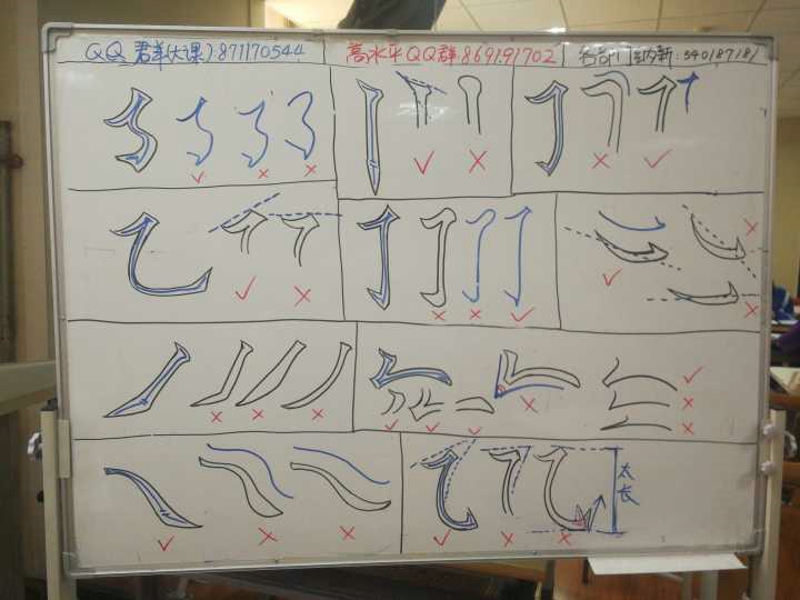 QQ 君羊(大课):871170544
高水平QQ群:869191702
各部门纳新:54018718
太长